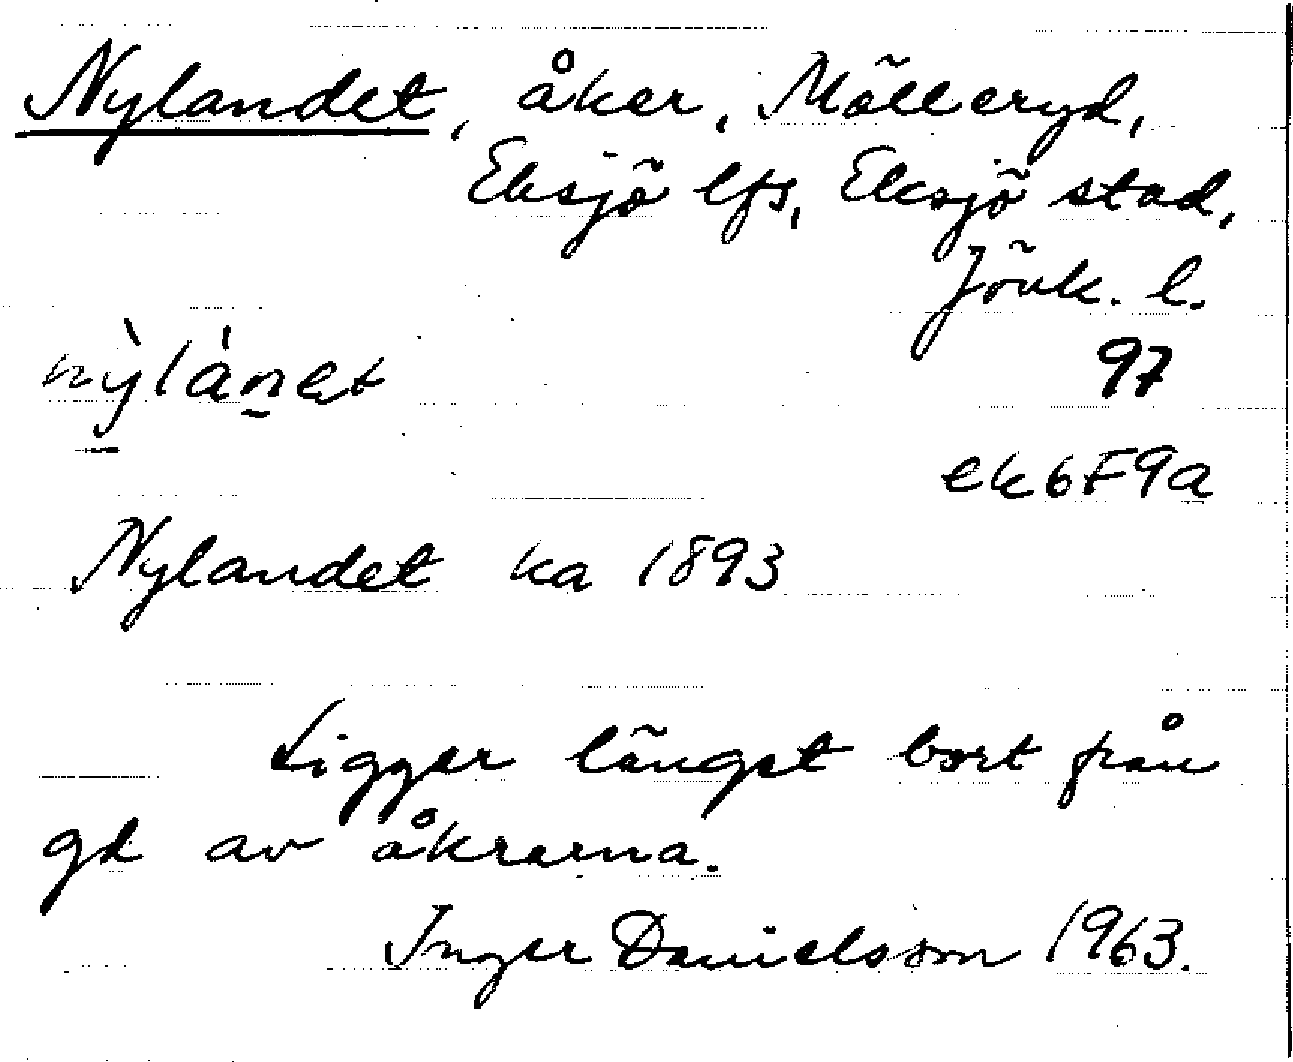 Nylandet, åker, Mölleryd,
Eksjö lfs, Eksjö stad,
Jönk. l.
nỳlánet
97
ek6F9a
Nylandet ka 1893
Ligger längst bort från
gd av åkrarna.
Inger Danielsson 1963.